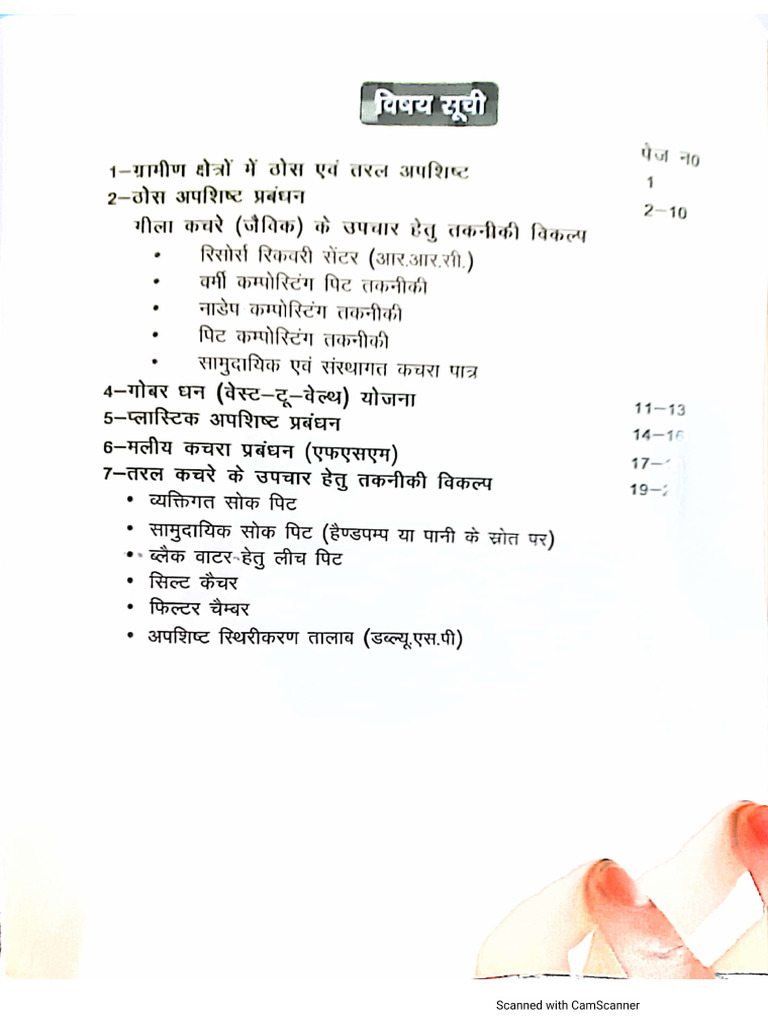 विषय सूची
पेज न0
1–ग्रामीण क्षेत्रों में ठोस एवं तरल अपशिष्ट 1
2–ठोस अपशिष्ट प्रबंधन 2–10
गीला कचरे (जैविक) के उपचार हेतु तकनीकी विकल्प
• रिसोर्स रिकवरी सेंटर (आर.आर.सी.)
• वर्मी कम्पोस्टिंग पिट तकनीकी
• नाडेप कम्पोस्टिंग तकनीकी
• पिट कम्पोस्टिंग तकनीकी
• सामुदायिक एवं संस्थागत कचरा पात्र
4–गोबर धन (वेस्ट–टू–वेल्थ) योजना 11–13
5–प्लास्टिक अपशिष्ट प्रबंधन 14–16
6–मलीय कचरा प्रबंधन (एफएसएम) 17–
7–तरल कचरे के उपचार हेतु तकनीकी विकल्प 19–2
• व्यक्तिगत सोक पिट
• सामुदायिक सोक पिट (हैण्डपम्प या पानी के स्रोत पर)
• ब्लैक वाटर हेतु लीच पिट
• सिल्ट कैचर
• फिल्टर चैम्बर
• अपशिष्ट स्थिरीकरण तालाब (डब्ल्यू.एस.पी)
Scanned with CamScanner